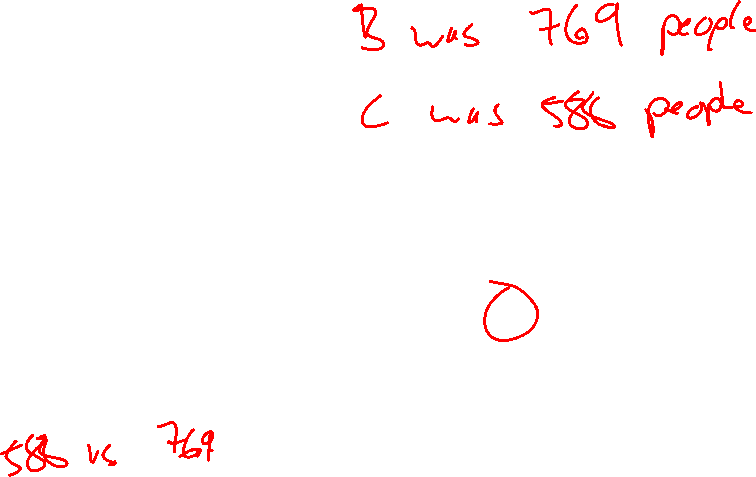 B was 769 people
C was 586 people
586 vs 769